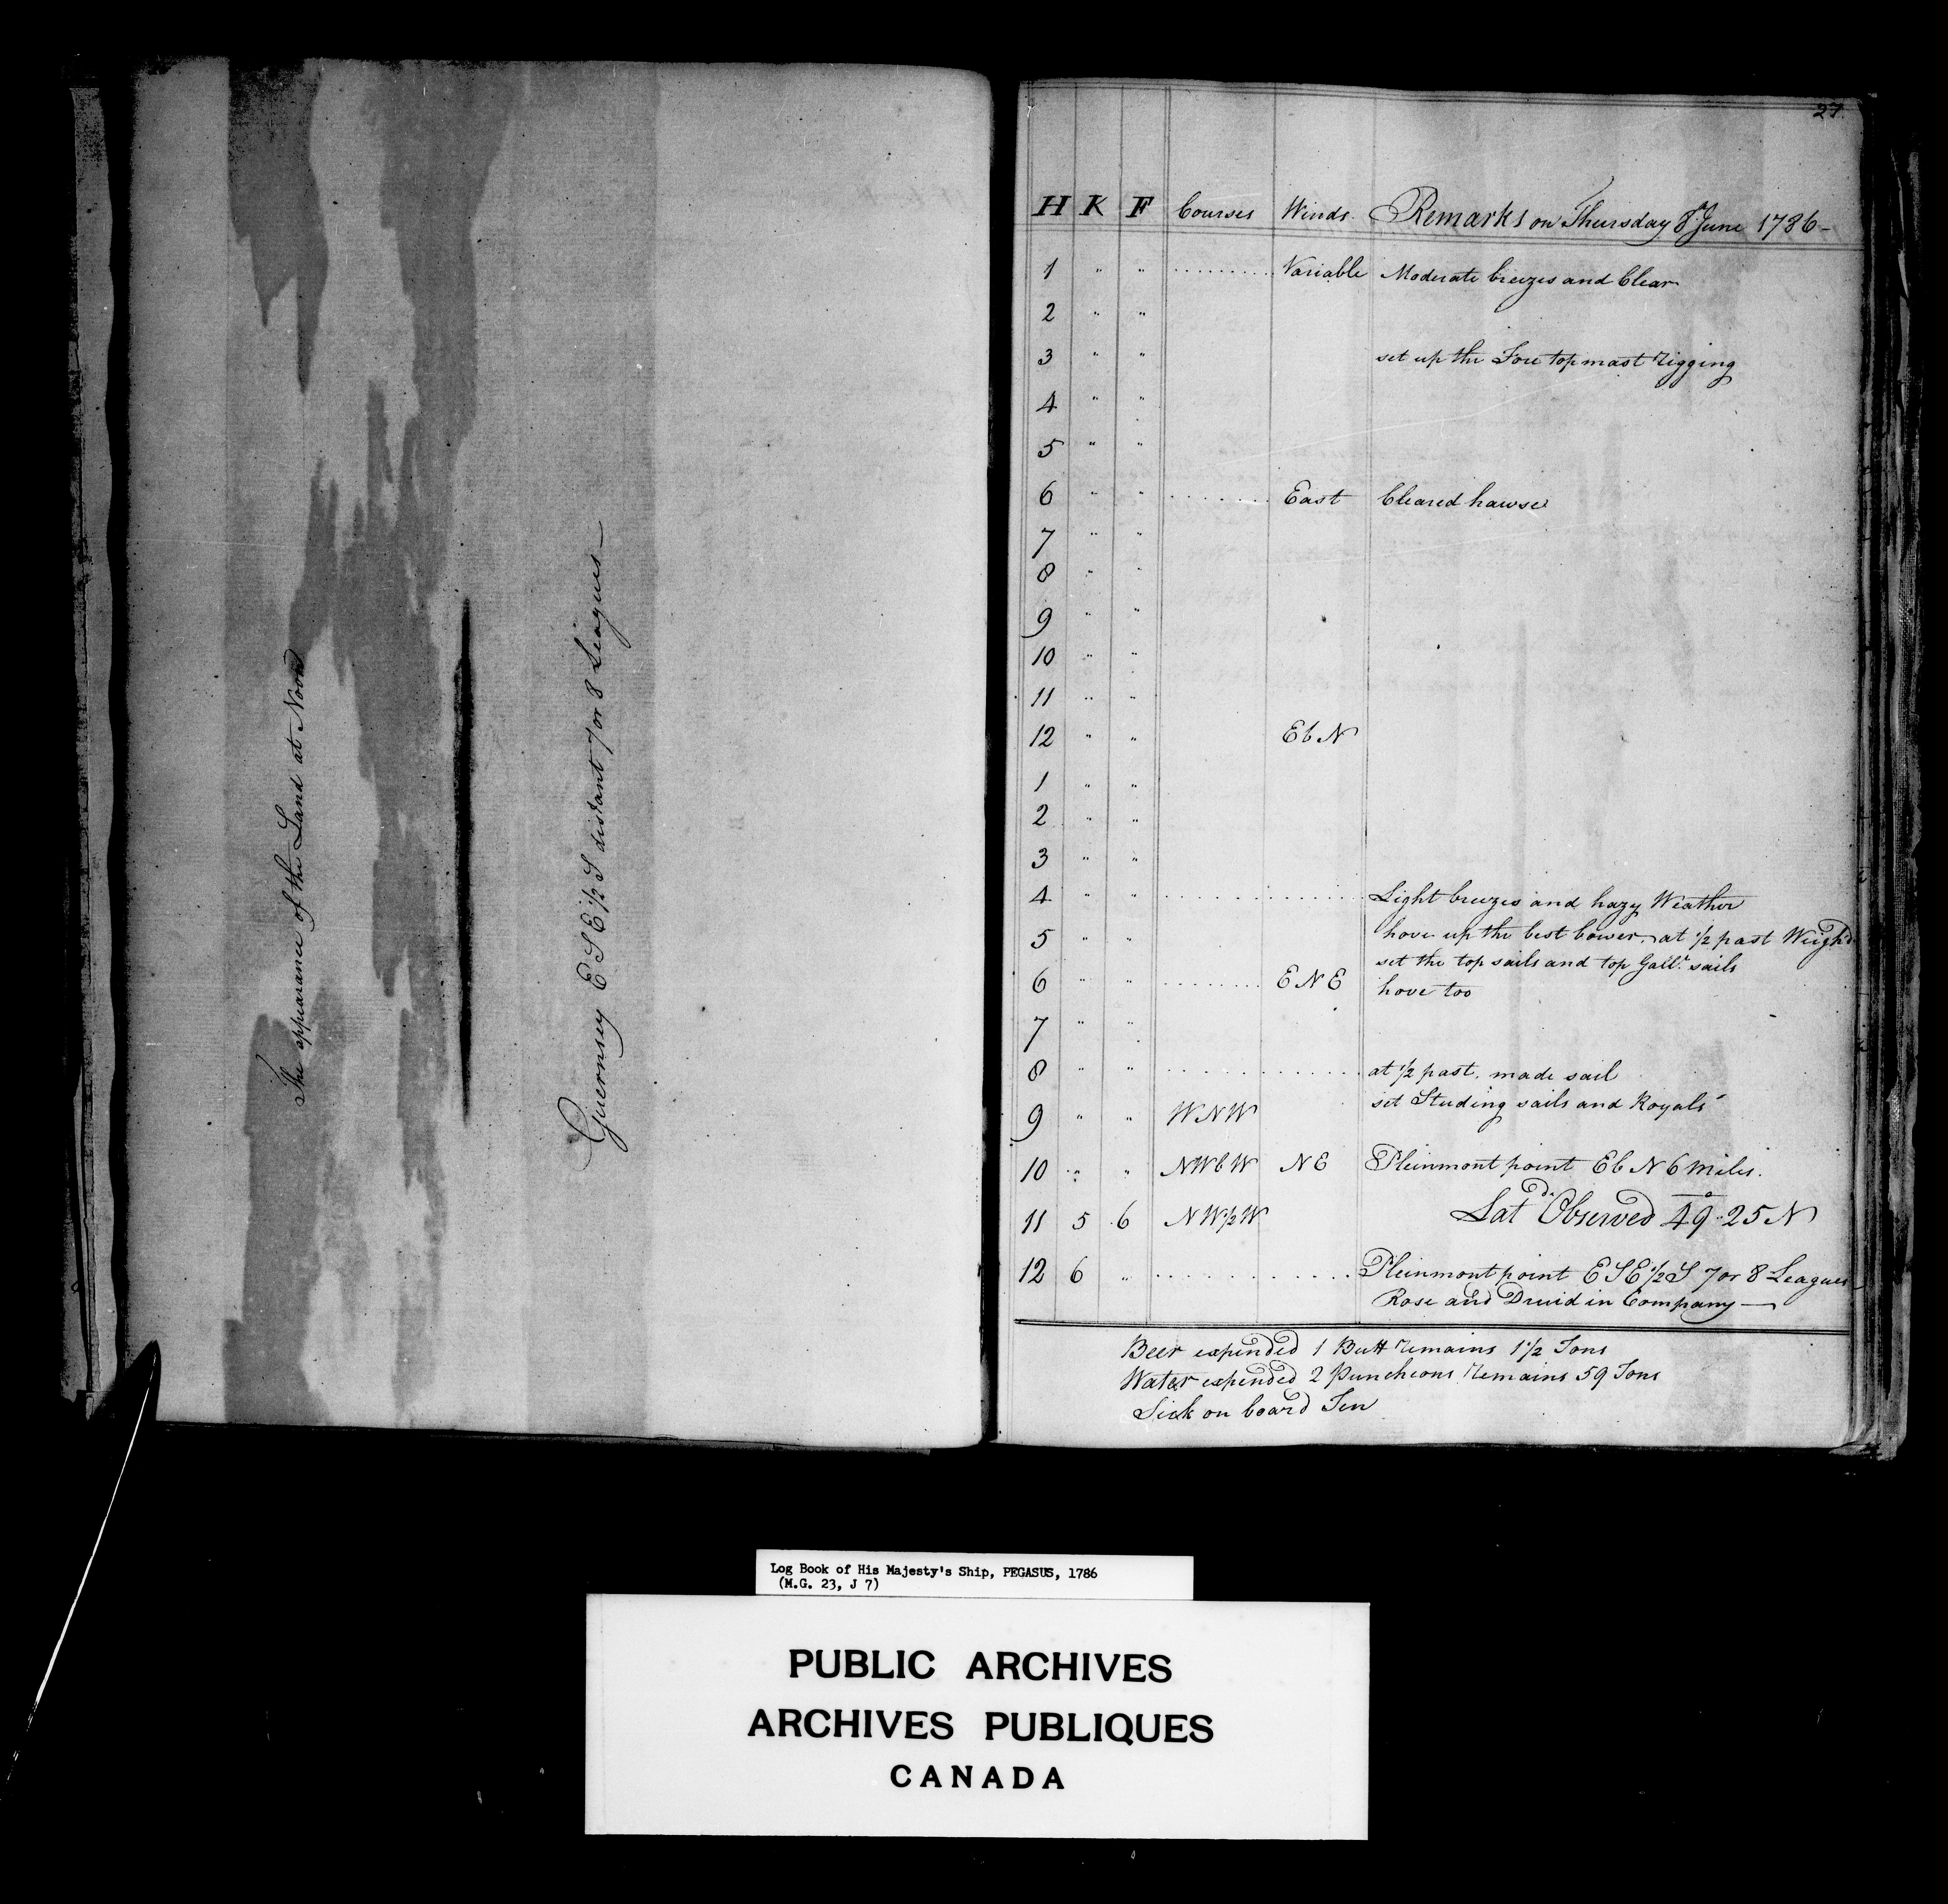 The appearance of the Land at Noon
Guernsey E S E ½ S distant 7 or 8 Leagues—
27
H K F Courses Winds Remarks on Thursday 8th June 1786—
1 " " .......... Variable Moderate breezes and Clear
2 " "
3 " " set up the Fore top mast rigging
4 " "
5 " "
6 " " ....... East Cleared hawse
7 " "
8 " "
9 " "
10 " "
11 " "
12 " " E b N
1 " "
2 " "
3 " "
4 " " .............. Light breezes and hazy Weather
5 " " hove up the best bower, at ½ past Weigh'd
set the top sails and top Gallt. sails
6 " " ........ E N E hove too
7 " "
8 " " .............. at ½ past, made sail
set Studing sails and Royals
9 " " W N W
10 " " N W b W N E Pleinmont point E b N 6 Miles.
11 5 6 N W ½ W Latd. Observed 49°..25 N
12 6 " .............. Pleinmont point E S E ½ S 7 or 8 Leagues
Rose and Druid in Company—
Beer expended 1 Butt remains 1½ Tons
Water expended 2 Puncheons remains 59 Tons
Sick on board Ten
Log Book of His Majesty's Ship, PEGASUS, 1786
(M.G. 23, J 7)
PUBLIC ARCHIVES
ARCHIVES PUBLIQUES
CANADA